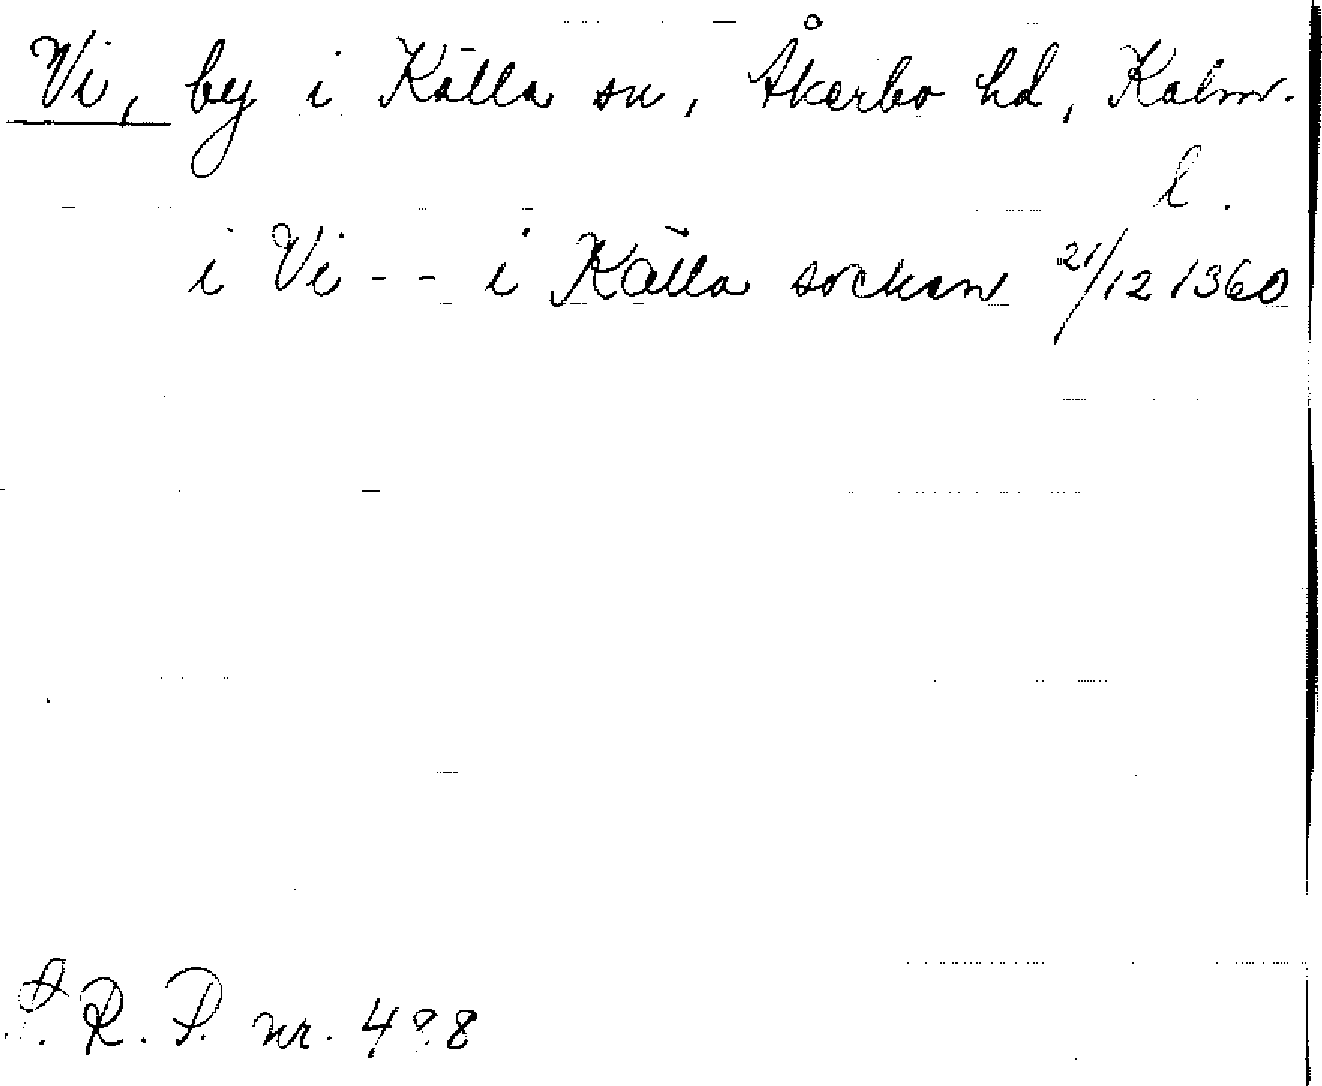 Vi, by i Källa sn, Åkerbo hd, Kalm.
l.
i Vi - - i Källa sockan 21/12 1360
S. R. P. nr.